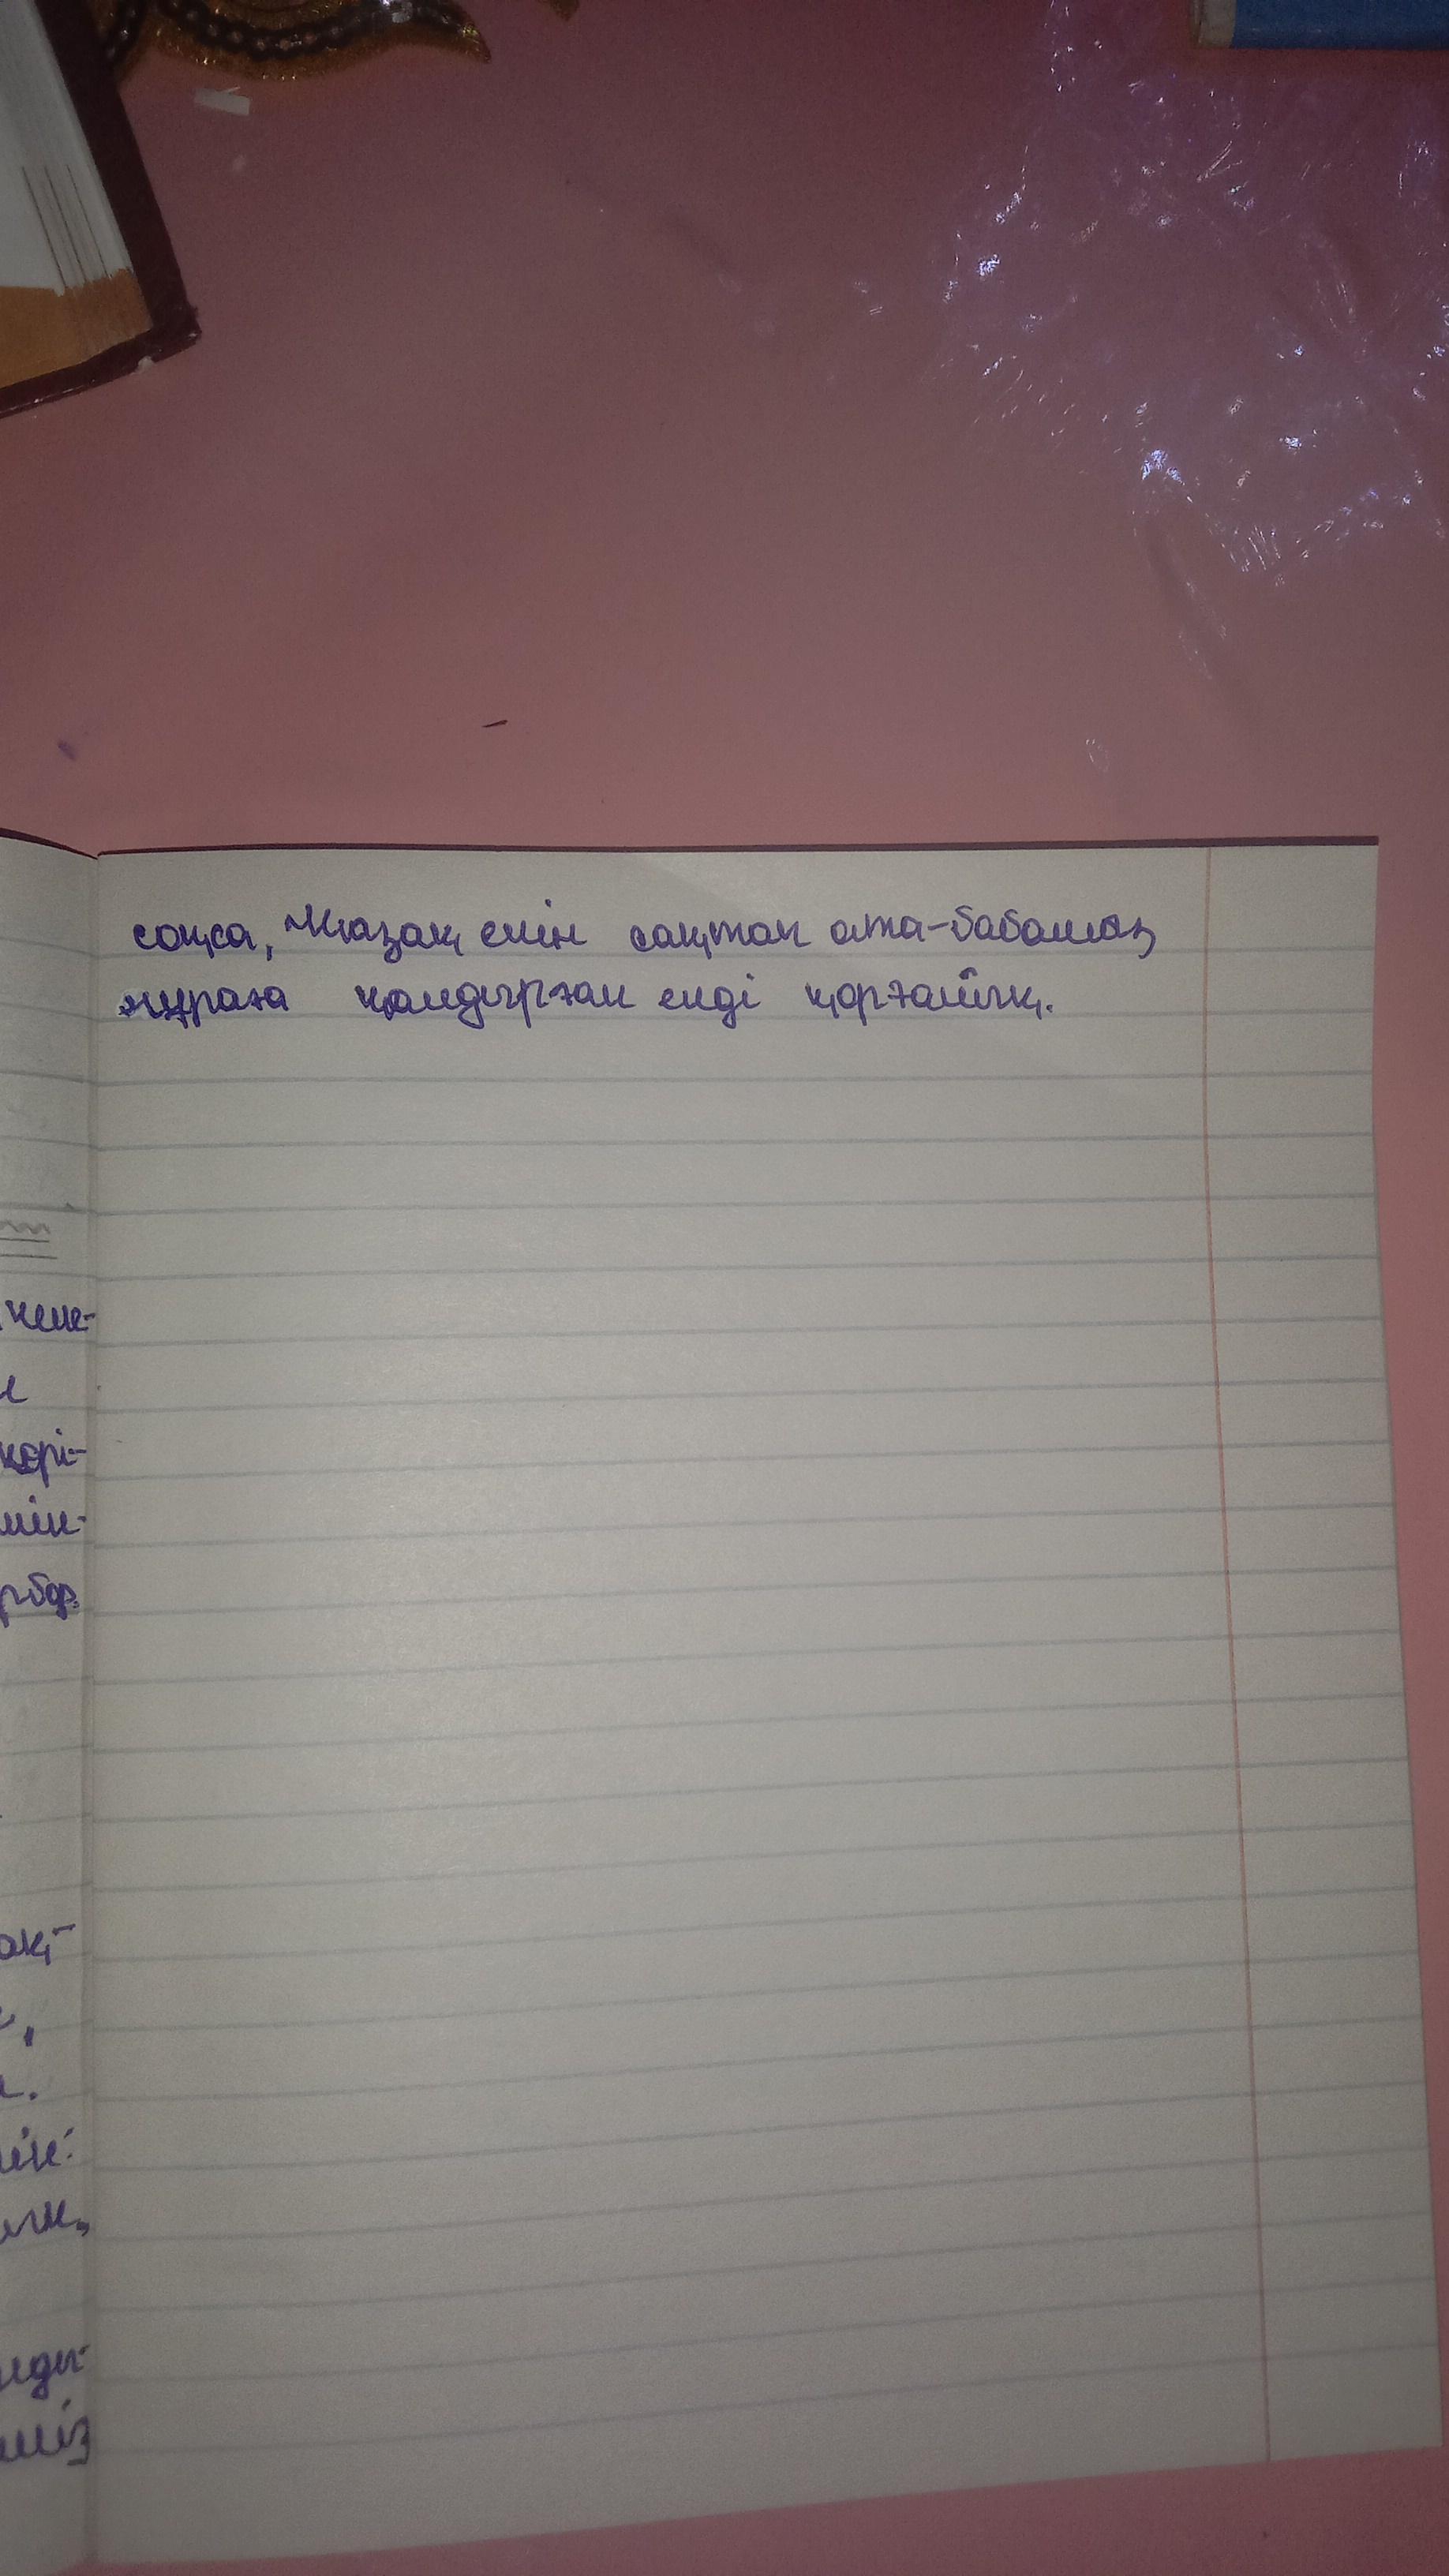 соңса, Қазақ елін сақтап ата-бабамыз
мұраға қалдырған елді қорғайық.
келе-
көрі-
рбор.
ақ-
лды-
міз